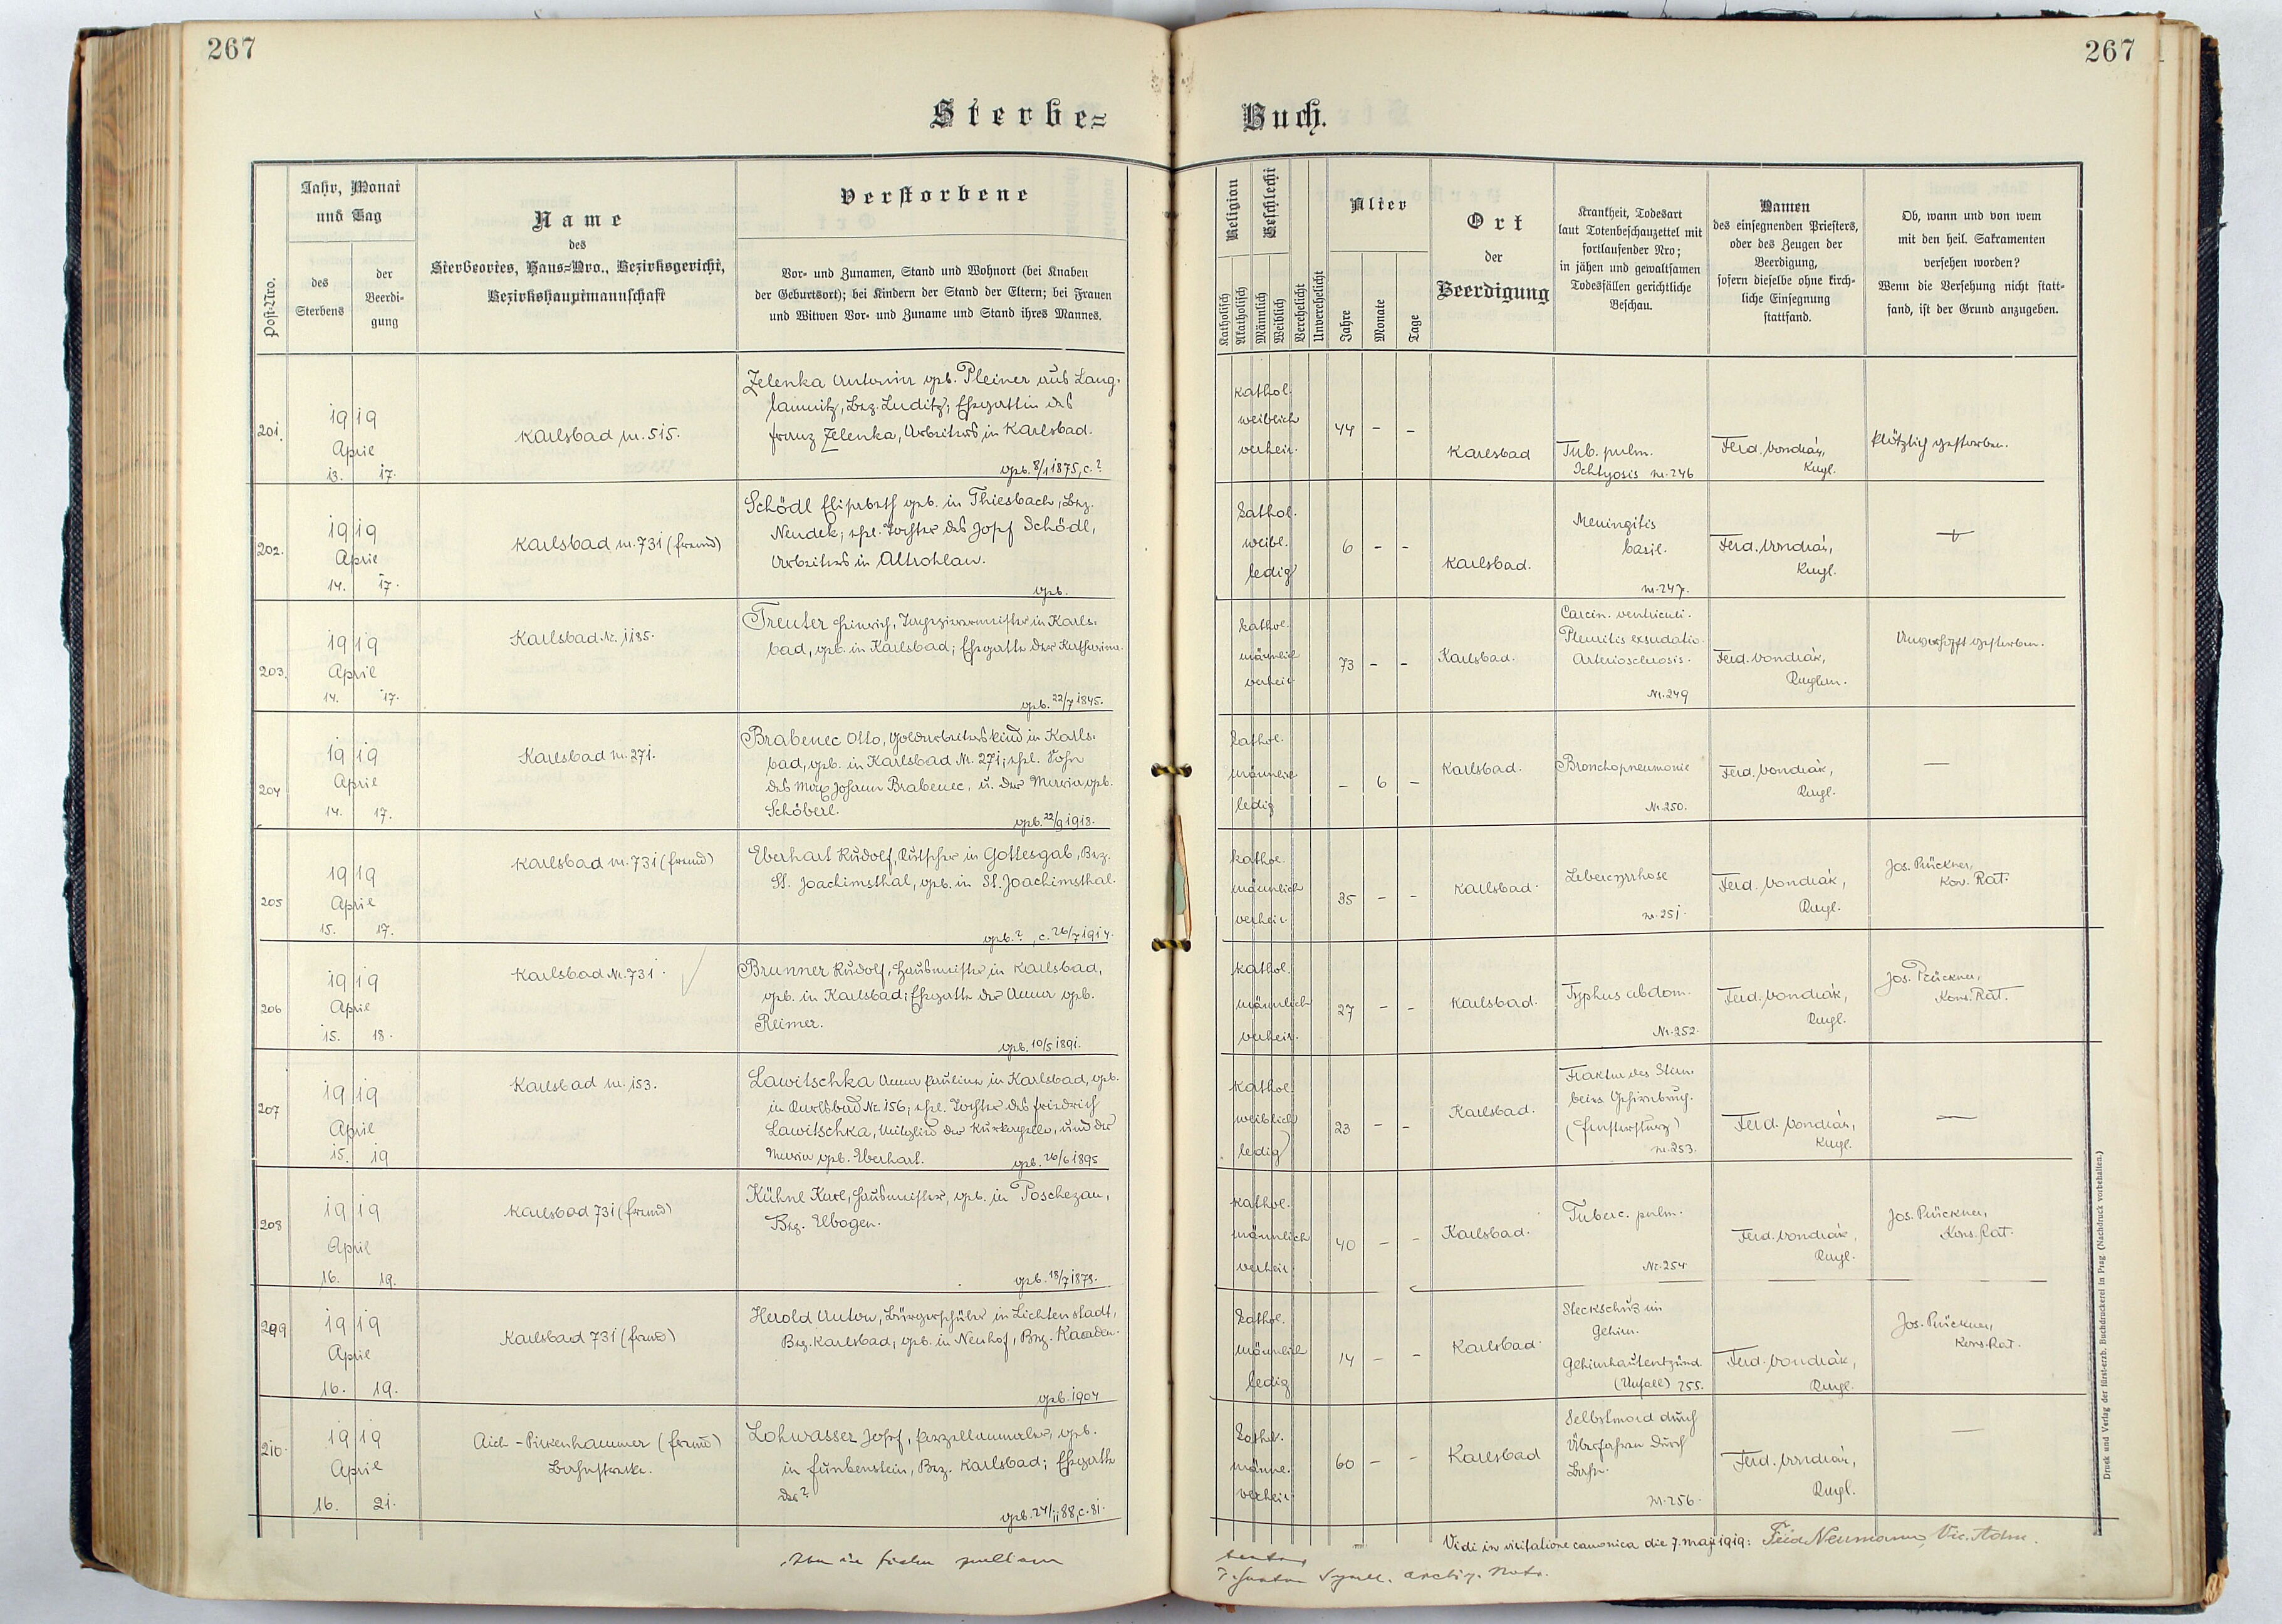 267
267
Sterbe=
Buch.
Post-Nro.
Jahr, Monat
und Tag
des
Sterbens
der
Beerdi-
gung
Name
des
Sterbeortes, Haus=Nro., Bezirksgericht,
Bezirkshauptmannschaft
Verstorbene
Vor- und Zunamen, Stand und Wohnort (bei Knaben
der Geburtsort); bei Kindern der Stand der Eltern; bei Frauen
und Witwen Vor- und Zuname und Stand ihres Mannes.
Religion
Katholisch
Akatholisch
Geschlecht
Männlich
Weiblich
Verehelicht
Unverehelicht
Alter
Jahre
Monate
Tage
Ort
der
Beerdigung
Krankheit, Todesart
laut Totenbeschauzettel mit
fortlaufender Nro;
in jähen und gewaltsamen
Todesfällen gerichtliche
Beschau.
Namen
des einsegnenden Priesters,
oder des Zeugen der
Beerdigung,
sofern dieselbe ohne kirch-
liche Einsegnung
stattfand.
Ob, wann und von wem
mit den heil. Sakramenten
versehen worden?
Wenn die Versehung nicht statt-
fand, ist der Grund anzugeben.
201.
1919
April
13. 17.
Karlsbad nr. 515.
Zelenka Antonin geb. Pleiner aus Lang-
lamnitz, Bez. Luditz; Ehegattin des
Franz Zelenka, Arbeiters in Karlsbad.
geb. 8/1 1875, c.?
kathol.
weiblich
verheir.
44 – –
Karlsbad
Tub. pulm.
Ichtyosis nr. 246
Ferd. Vondrák,
Kugl.
Plötzlich gestorben.
202.
1919
April
14. 17.
Karlsbad nr. 731 (fremd)
Schödl Elisabeth geb. in Thiesbach, Bez.
Neudek; ehel. Tochter des Josef Schödl,
Arbeiters in Altrohlau.
geb.
kathol.
weibl.
ledig
6 – –
Karlsbad.
Meningitis
basil.
nr. 247.
Ferd. Vondrák,
Kugl.
+
203.
1919
April
14. 17.
Karlsbad Nr. 1185.
Treuter Heinrich, Tapezierermeister in Karls-
bad, geb. in Karlsbad; Ehegatte der Katharina
geb. 22/7 1845.
kathol.
männlich
verheir.
73 – –
Karlsbad.
Carcin. ventriculi.
Pleuritis exsudativ.
Arteriosclerosis.
Nr. 249
Ferd. Vondrák,
Unverhofft gestorben.
204
1919
April
14. 17.
Karlsbad nr. 271.
Brabenec Otto, Goldarbeiterskind in Karls-
bad, geb. in Karlsbad Nr. 271; ehel. Sohn
des Max Johann Brabenec, u. der Maria geb.
Schöberl.
geb. 22/9 1918.
kathol.
männlich
ledig
– 6 –
Karlsbad.
Bronchopneumonie
Nr. 250.
Ferd. Vondrák,
Kugl.
—
205
1919
April
15. 17.
Karlsbad nr. 731 (fremd)
Eberhart Rudolf, Kutscher in Gottesgab, Bez.
St. Joachimsthal, geb. in St. Joachimsthal.
geb.?, c. 26/7 1914.
kathol.
männlich
verheir.
35 – –
Karlsbad.
Lebercyrrhose
nr. 251.
Ferd. Vondrák,
Kugl.
Jos. Prückner,
Kon. Rat.
206
1919
April
15. 18.
Karlsbad Nr. 731.
Brunner Rudolf, Hausmeister in Karlsbad,
geb. in Karlsbad; Ehegatte der Anna geb.
Reimer.
geb. 10/5 1891.
kathol.
männlich
verheir.
27 – –
Karlsbad.
Typhus abdom.
Nr. 252.
Ferd. Vondrák,
Kugl.
Jos. Prückner,
Kons. Rat.
207
1919
April
15. 19
Karlsbad nr. 153.
Lawitschka Anna Paulina in Karlsbad, geb.
in Karlsbad Nr. 156; ehel. Tochter des Friedrich
Lawitschka, Mitglied der Kurkapelle, und der
Maria geb. Eberhart. geb. 26/6 1895
kathol.
weiblich
ledig
23 – –
Karlsbad.
Fraktur des Stirn-
beins
(Fenstersturz)
nr. 253.
Ferd. Vondrák,
Kugl.
—
208
1919
April
16. 19.
Karlsbad 731 (fremd)
Kühnl Karl, Hausmeister, geb. in Poschezau,
Bez. Elbogen.
geb. 18/7 1878.
kathol.
männlich
verheir.
40 – –
Karlsbad.
Tuberc. pulm.
Nr. 254
Ferd. Vondrák,
Kugl.
Jos. Prückner,
Kons. Rat.
209
1919
April
16. 19.
Karlsbad 731 (fremd)
Herold Anton, Bürgerschüler in Lichtenstadt,
Bez. Karlsbad, geb. in Neuhof, Bez. Kaaden.
geb. 1904
kathol.
männlich
ledig
14 – –
Karlsbad.
Steckschuß im
Gehirn.
Gehirnhautentzünd.
(Unfall) 255.
Ferd. Vondrák,
Kugl.
Jos. Prückner,
Kons. Rat.
210.
1919
April
16. 21.
Aich - Pirkenhammer (fremd)
Bahnstrecke.
Lohwasser Josef, Porzellanmaler, geb.
in Funkenstein, Bez. Karlsbad; Ehegatte
der?
geb. 24/11 88, c. 81.
kathol.
männl.
verheir.
60 – –
Karlsbad
Selbstmord durch
Überfahren durch
Bahn.
nr. 256.
Ferd. Vondrák,
Kugl.
—
Vidi in visitatione canonica die 7. maji 1919: Ferd Neumann, Vic. Adm.
Druck und Verlag der fürst-erzb. Buchdruckerei in Prag (Nachdruck vorbehalten.)